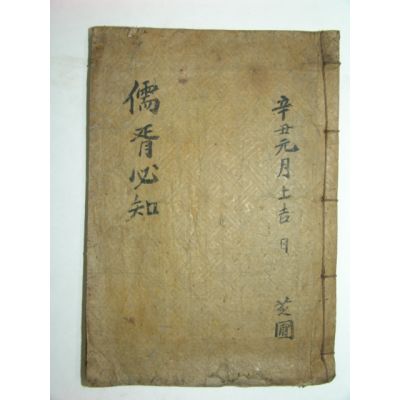 辛丑元月上吉日 芝圃
儒胥必知